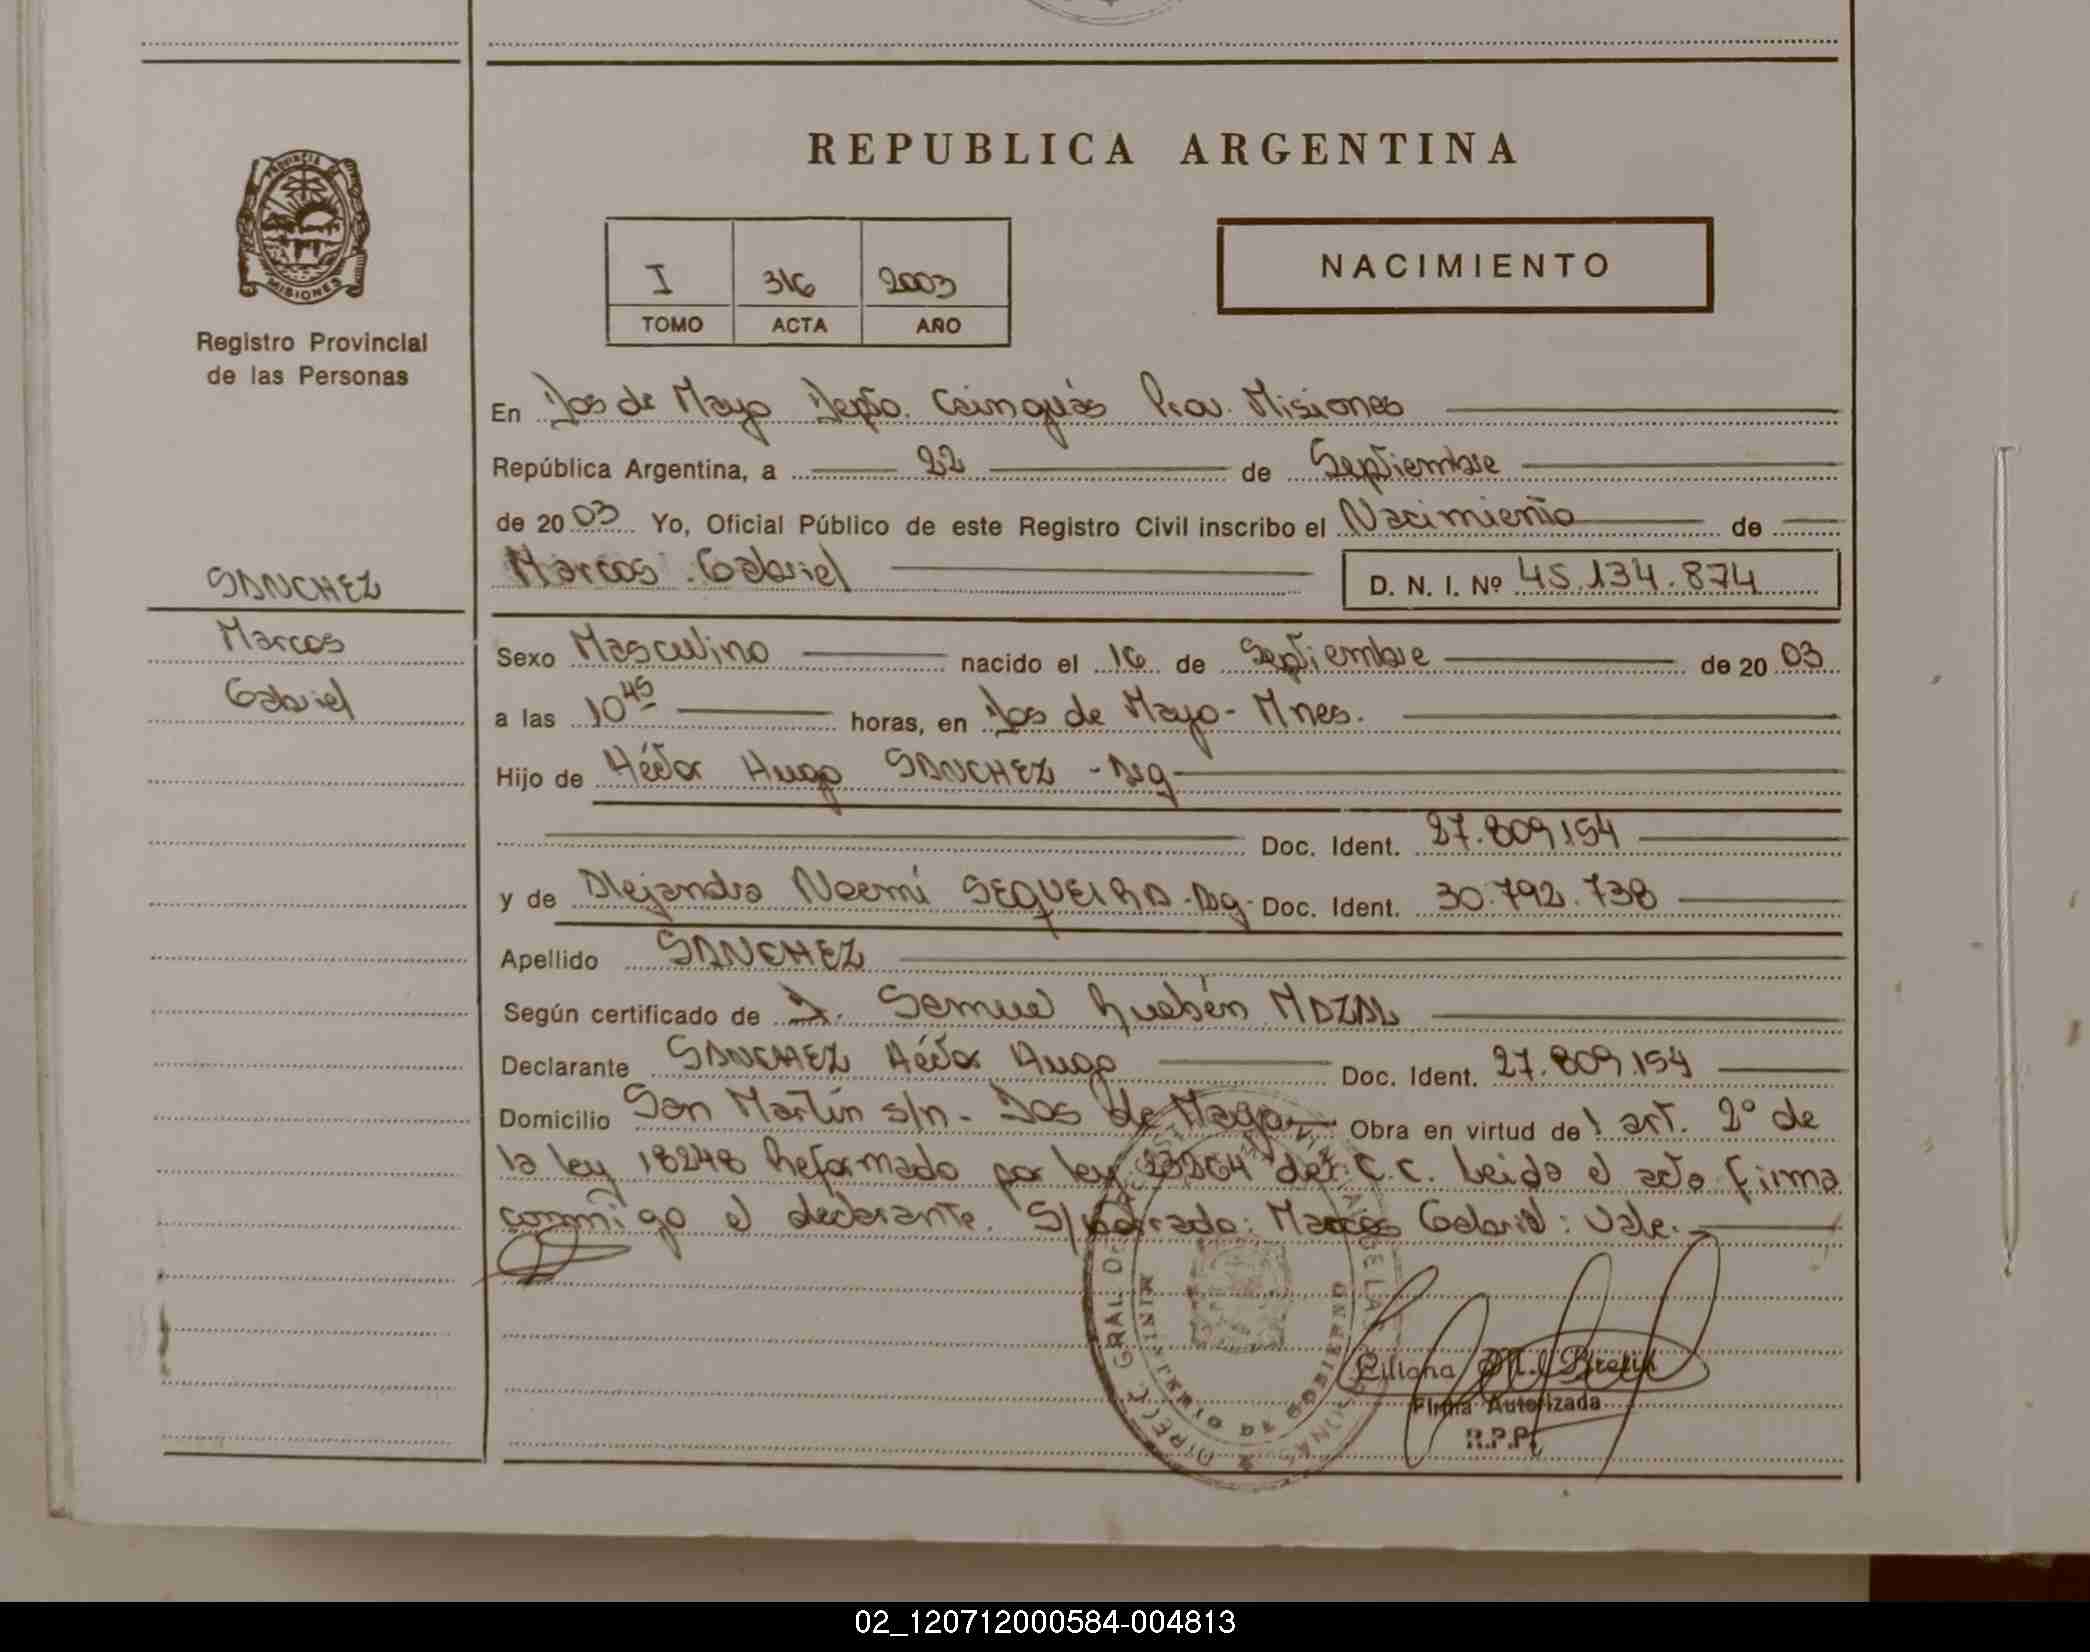 REPUBLICA ARGENTINA
PROVINCIA
MISIONES
Registro Provincial
de las Personas
I 316 2003
TOMO ACTA AÑO
NACIMIENTO
En Dos de Mayo Depto. Cainguás Prov. Misiones
República Argentina, a 22 de Septiembre
de 2003 Yo, Oficial Público de este Registro Civil inscribo el Nacimiento de
SANCHEZ
Marcos Gabriel D. N. I. Nº 45.134.874
Marcos
Sexo Masculino nacido el 16 de Septiembre de 2003
Gabriel
a las 10 45 horas, en Dos de Mayo - Mnes.
Hijo de Héctor Hugo SANCHEZ - Arg
Doc. Ident. 27.809.154
y de Alejandra Noemí SEQUEIRA - Arg - Doc. Ident. 30.792.738
Apellido SANCHEZ
Según certificado de D. Samuel Rubén MAZAL
Declarante SANCHEZ Héctor Hugo Doc. Ident. 27.809.154
Domicilio San Martín s/n - Dos de Mayo Obra en virtud del art. 2º de
la ley 18248 Reformado por ley 23264 del C.C. Leida el acta firma
conmigo el declarante. S/borrado: Marcos Gabriel: Vale.
MINISTERIO DE GOBIERNO
Liliana M.
Firma Autorizada
R.P.P.
02_120712000584-004813